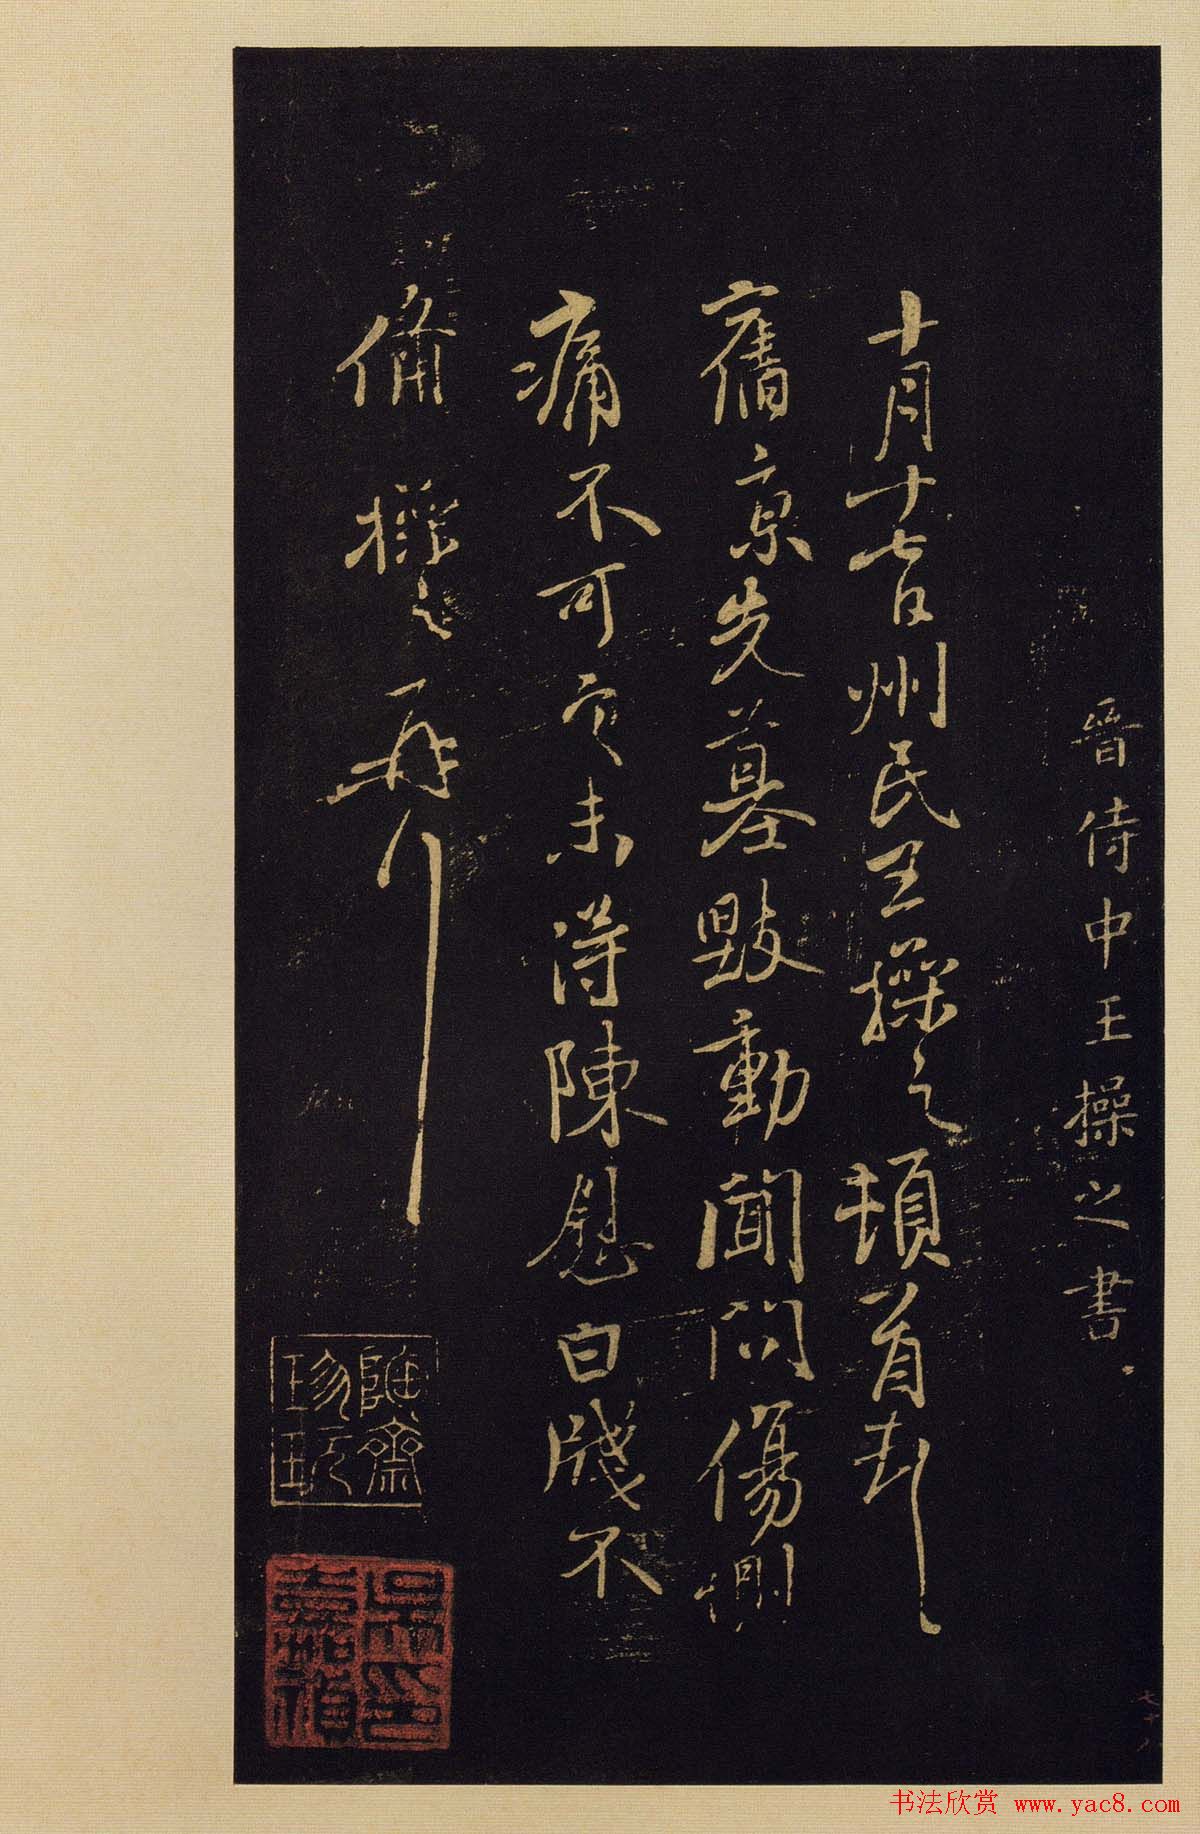 晉侍中王操之書
十月十七日州民王操之頓首
舊京先墓毀動聞問傷惻
痛不可言未得陳慰白牋不
備操之再行
珍玩
七十八
书法欣赏 www.yac8.com